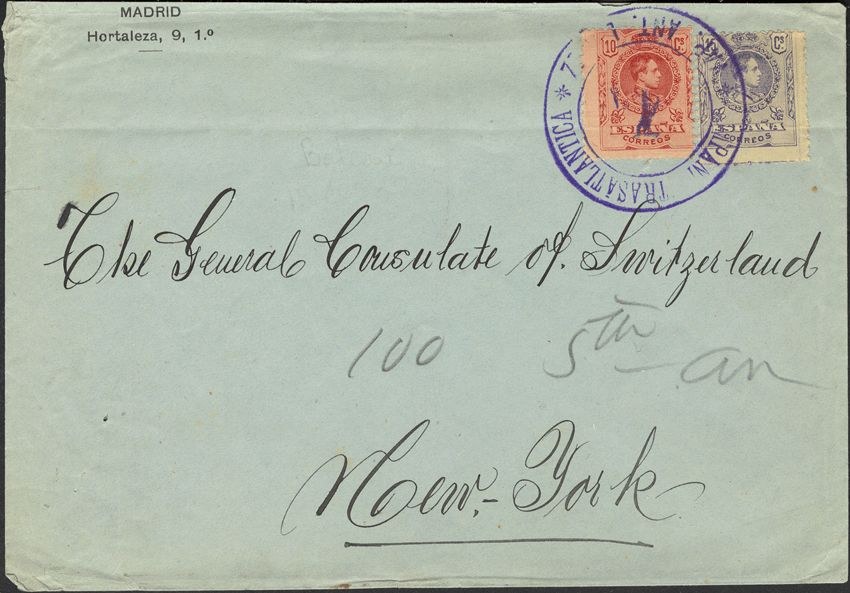 MADRID
Hortaleza, 9, 1.º
10 Cs
ESPAÑA
CORREOS
Cs
ESPAÑA
CORREOS
TRASATLANTICA *
The General Consulate of. Switzerland
100 5th
New.-York